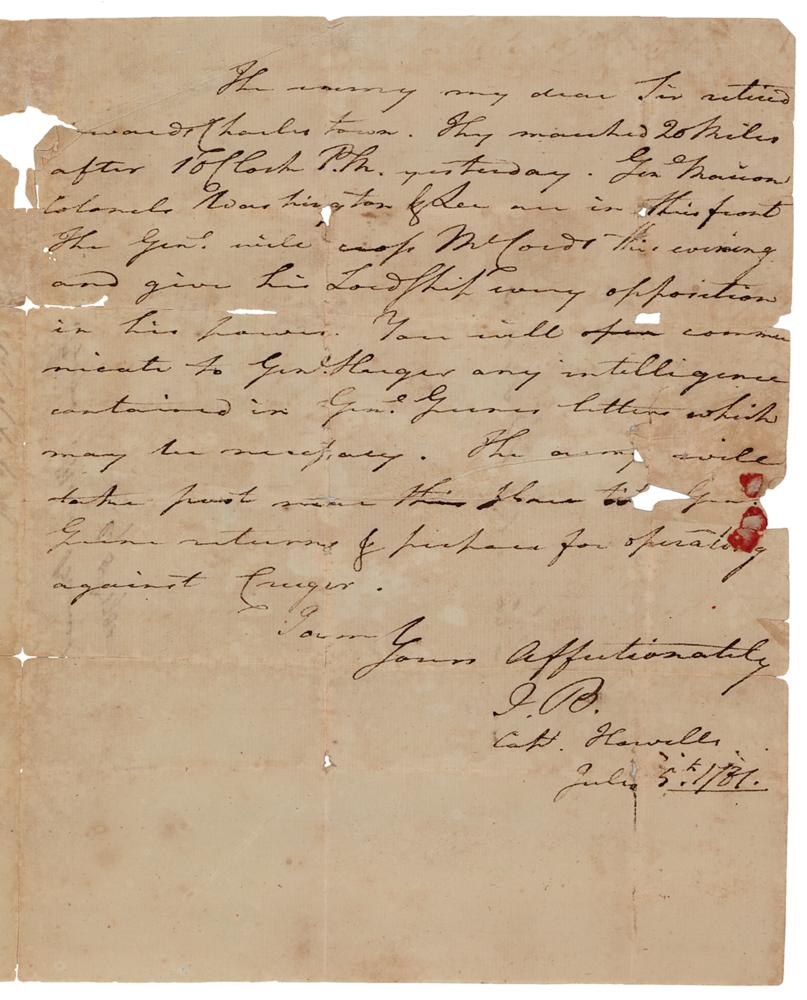 The enemy my dear Sir retired
towards Charles town. They marched 20 Miles
after 1 oClock P.M. yesterday. Genl Marion
Colonels Washington & Lee are in this front
The Genl. will cross McCords this evening
and give his LordShip every opposition
in his power. You will open commu
nicate to Genl. Huger any intelligence
contained in Genl. Greens letters which
may be necessary. The army will
take post near this place till Genl.
Greene returns & prepare for operating
against Cruger.
I am
Yours Affectionately
I. B.
Capt. Howells
July 5th. 1781.